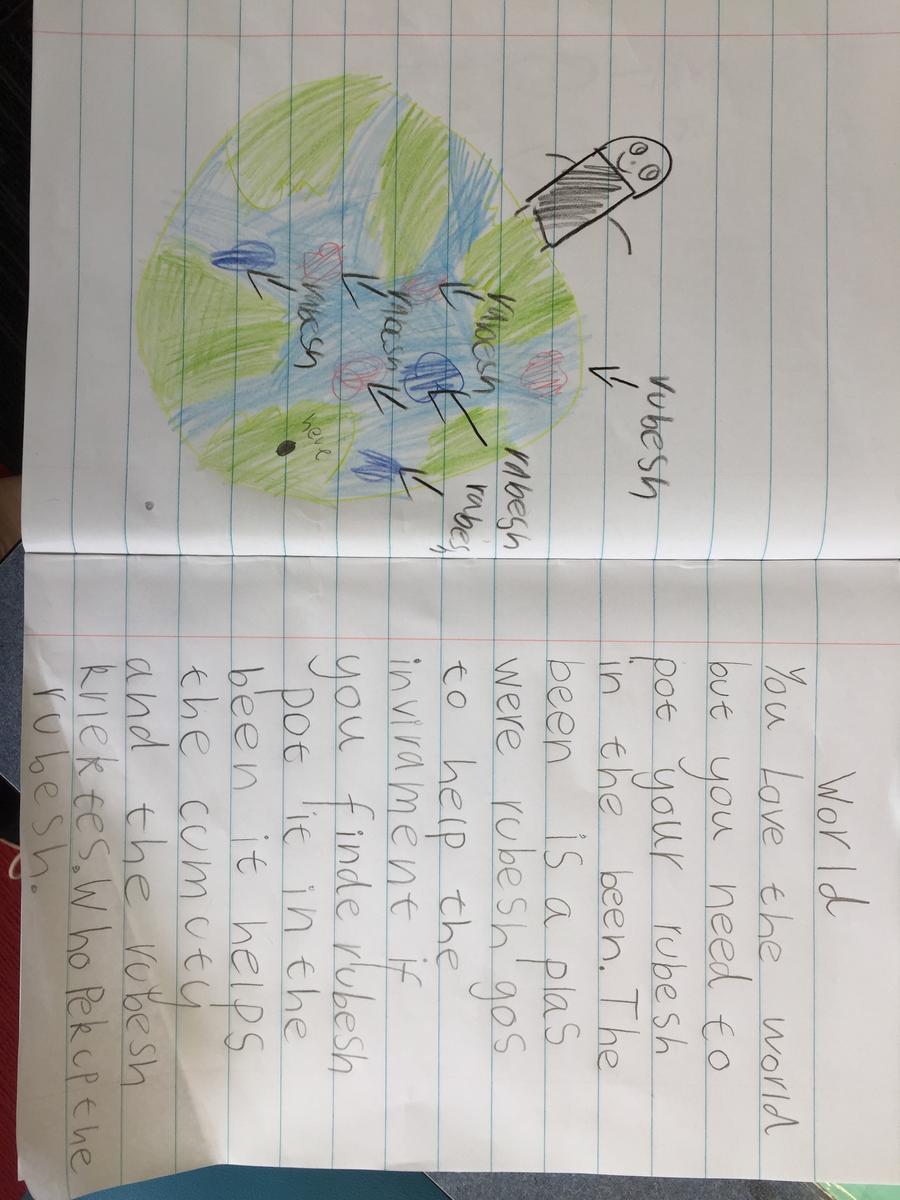 rubesh
rubesh
rubesh
rubesh
rubesh
rubesh
here
World
You Love the world
but you need to
pot your rubesh
in the been. The
been is a plas
were rubesh gos
to help the
invirament if
you finde rubesh
pot it in the
been it helps
the cumuty
and the rubesh
krlektes. Who Pek cp the
rubesh.